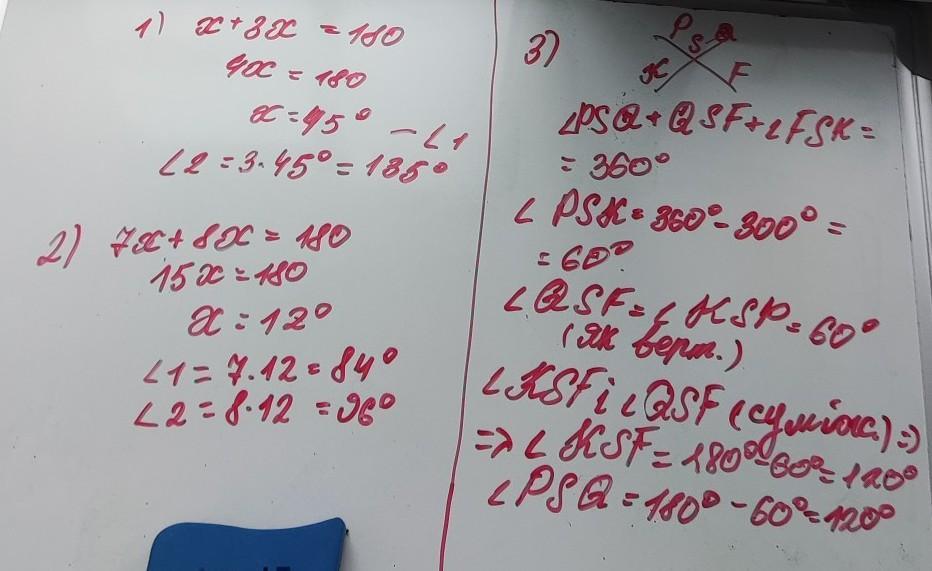 1) x + 3x = 180
4x = 180
x = 45° - ∠1
∠2 = 3·45° = 135°
2) 7x + 8x = 180
15x = 180
x = 12°
∠1 = 7·12 = 84°
∠2 = 8·12 = 96°
3) P S Q
K F
∠PSQ + QSF + ∠FSK =
= 360°
∠PSK = 360° - 300° =
= 60°
∠QSF = ∠KSP = 60°
(як верт.)
∠KSF і ∠QSF (суміж.) =>
=> ∠KSF = 180° - 60° = 120°
∠PSQ = 180° - 60° = 120°